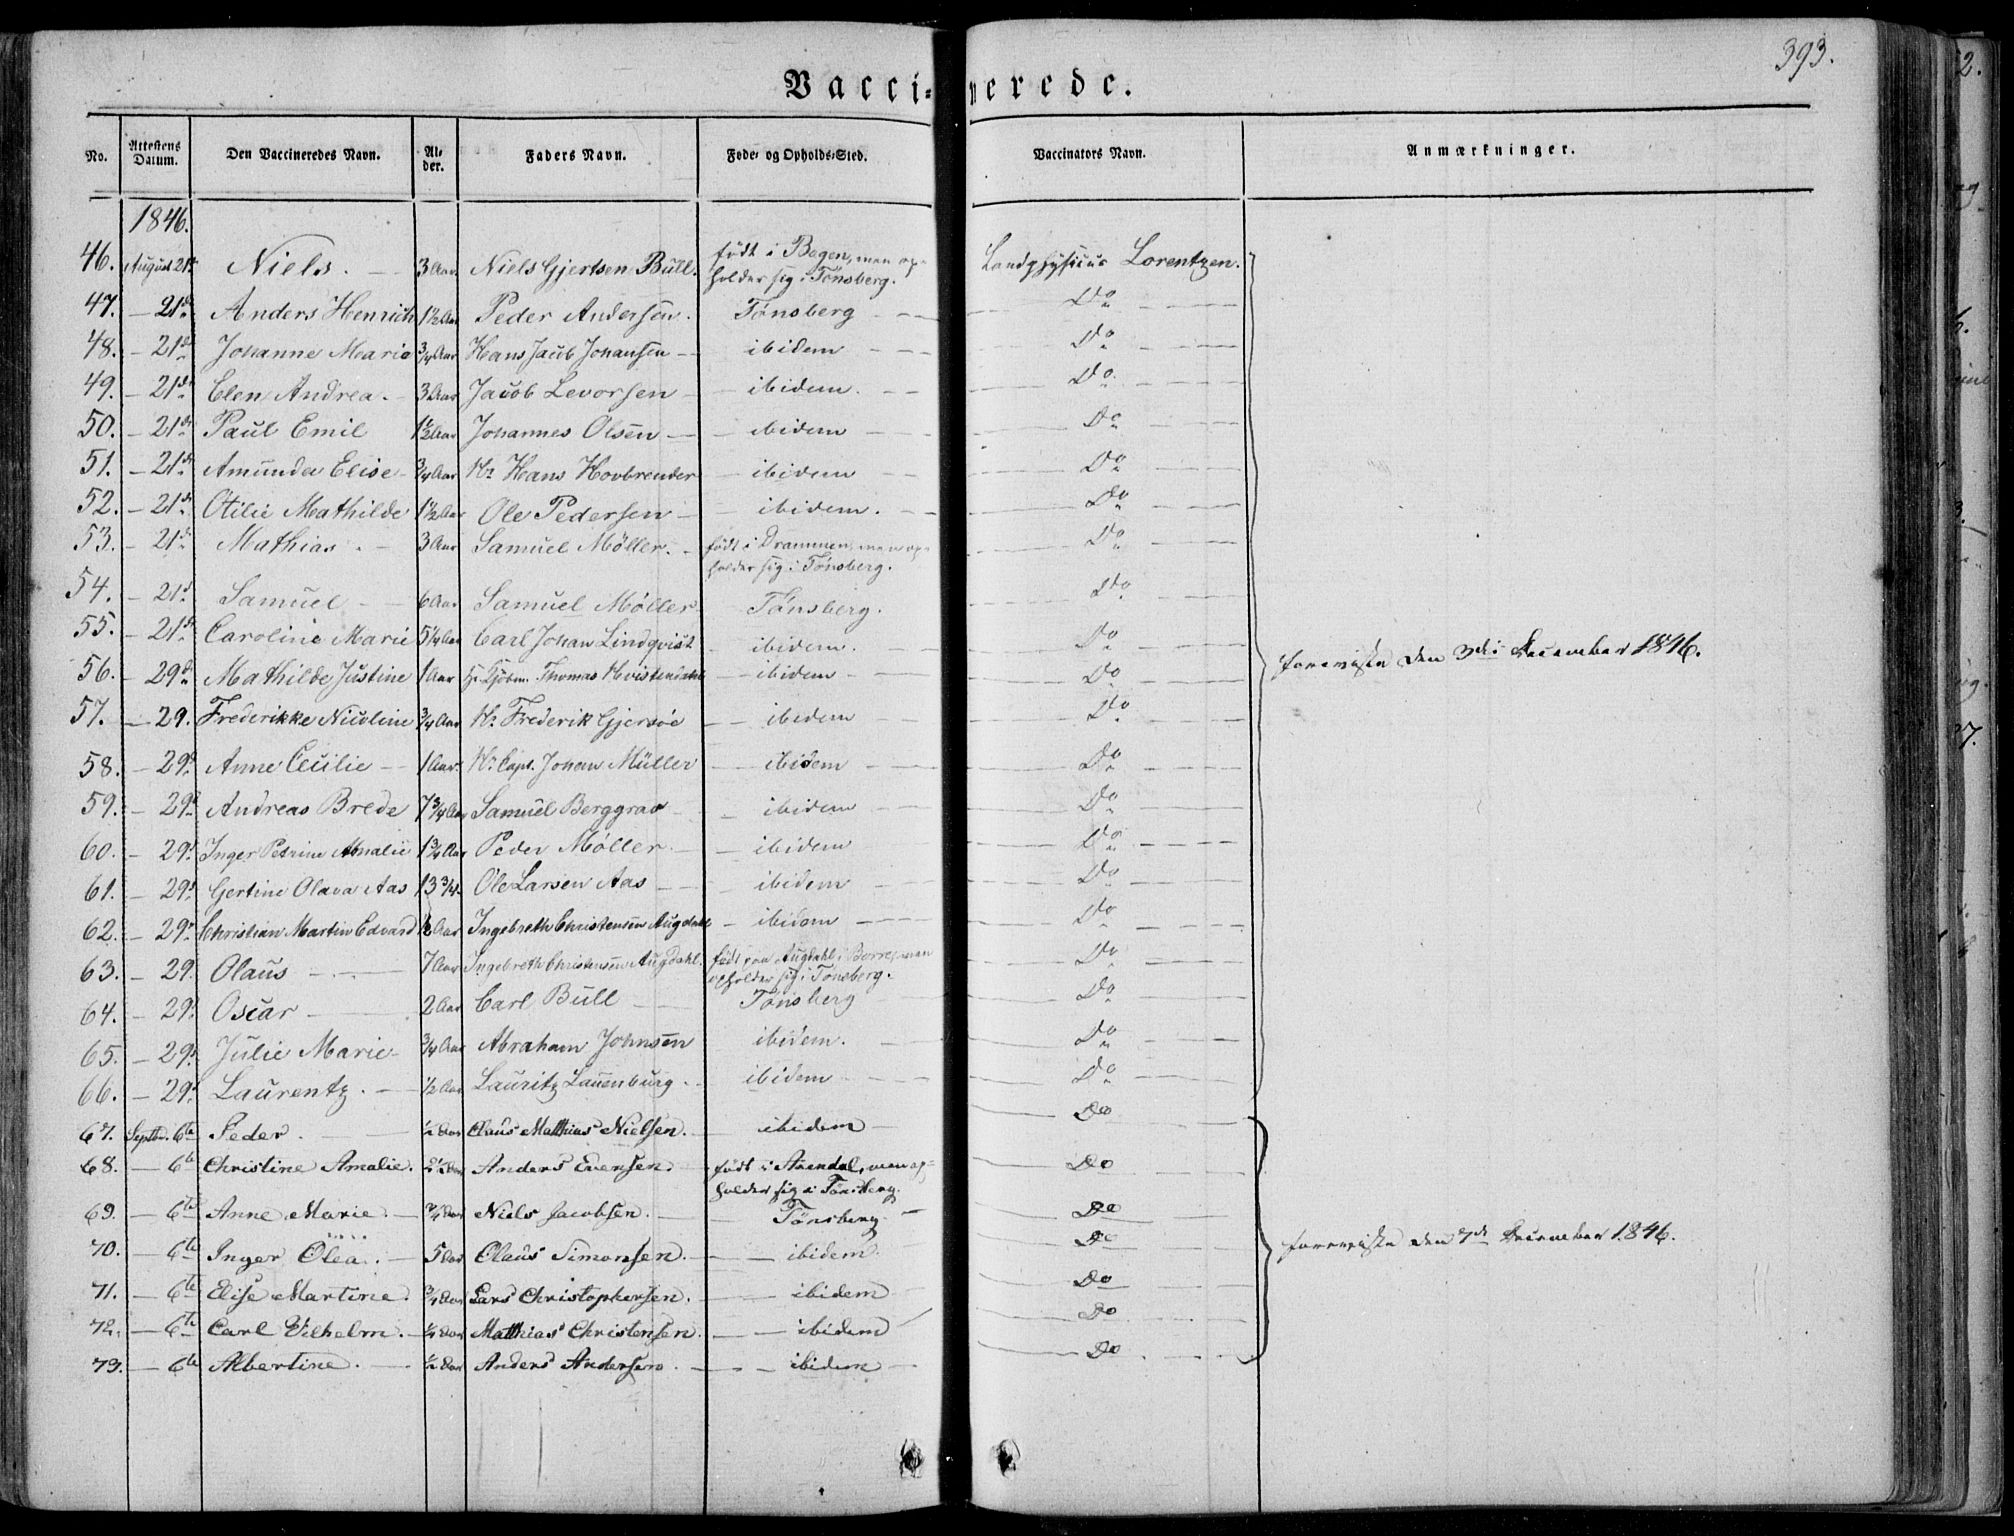 393.
Vacci-nerede.
No. Attestens Datum. Den Vaccineredes Navn. Al-der. Faders Navn. Føde- og Opholds-Sted. Vaccinators Navn. Anmærkninger.
1846.
46. August 21de Niels. — 3 Aar. Niels Gjertsen Bull. født i Bogen, men op-holder sig i Tønsberg. Landphysicus Lorentzen.
47. — 21de Anders Henrich 1½ Aar Peder Andersen. Tønsberg — Do
48. — 21de Johanne Marie ¾ Aar Hans Jacob Johansen — ibidem — Do
49. — 21de Elen Andrea. 3 Aar Jacob Levorsen — ibidem. — Do
50. — 21de Paul Emil 1½ Aar Johannes Olsen — ibidem — Do
51. — 21de Amunda Elise ¾ Aar Hr Hans Hovbrender — ibidem — Do
52. — 21de Otilie Mathilde 1½ Aar Ole Pedersen — ibidem. — Do
53. — 21de Mathias. — 3 Aar Samuel Möller. — født i Drammen, men op-holder sig i Tønsberg. Do
54. — 21de Samuel — 6 Aar Samuel Möller Tønsberg. Do
55. — 21de Caroline Marie 5¼ Aar Carl Johan Lindqvist — ibidem. — Do
56. — 29de Mathilde Justine 1 Aar Hr. Kjøbm. Thomas Hvistendahl — ibidem — Do
foreviste den 3die December 1846.
57. — 29. Frederikke Nicoline ¾ Aar Hr Frederik Gjersøe — ibidem Do
58. — 29d Anne Cecilie — 1 Aar. Hr Capt. Johan Müller — ibidem — Do
59. — 29d Andreas Brede 7¾ Aar Samuel Berggrav — ibidem — Do
60. — 29d Inger Petrine Amalie 1¾ Aar Peder Møller. — ibidem Do
61. — 29d Gertine Olava Aas 13¾ Ole Larsen Aas — ibidem — Do
62. — 29d Christian Martin Edvard ½ Aar Ingebreth Christensen Augdahl — ibidem — Do
63. — 29. Olaus — 7 Aar Ingebreth Christensen Augdahl. født paa Augdahl i Borre, men opholder sig i Tønsberg. Do
64. — 29d Oscar — 2 Aar Carl Bull — Tønsberg Do
65. — 29d Julie Marie — ¾ Aar Abraham Johnsen ibidem. — Do
66. — 29d Laurentz. — ½ Aar Lauritz Lauenburg. ibidem — Do
67. Septbr. 6te Peder. — Aar Claus Matthias Nielsen. — ibidem — Do
68. — 6te Christine Amalie. Aar Anders Evensen. født i Arendal, men op-holder sig i Tønsberg. Do
69. — 6te Anne Marie. — ¾ Aar Niels Jacobsen. — Tønsberg — Do
70. — 6te Inger Olea. — 5 Aar Olaus Simonsen. — ibidem. Do
foreviste den 7de December 1846.
71. — 6te Elise Martine. ¾ Aar Lars Christophersen. — ibidem — Do
72. — 6te Carl Vilhelm. — ¼ Aar Matthias Christensen. — ibidem Do
73. — 6te Albertine. — Aar Anders Andersen. — ibidem — Do